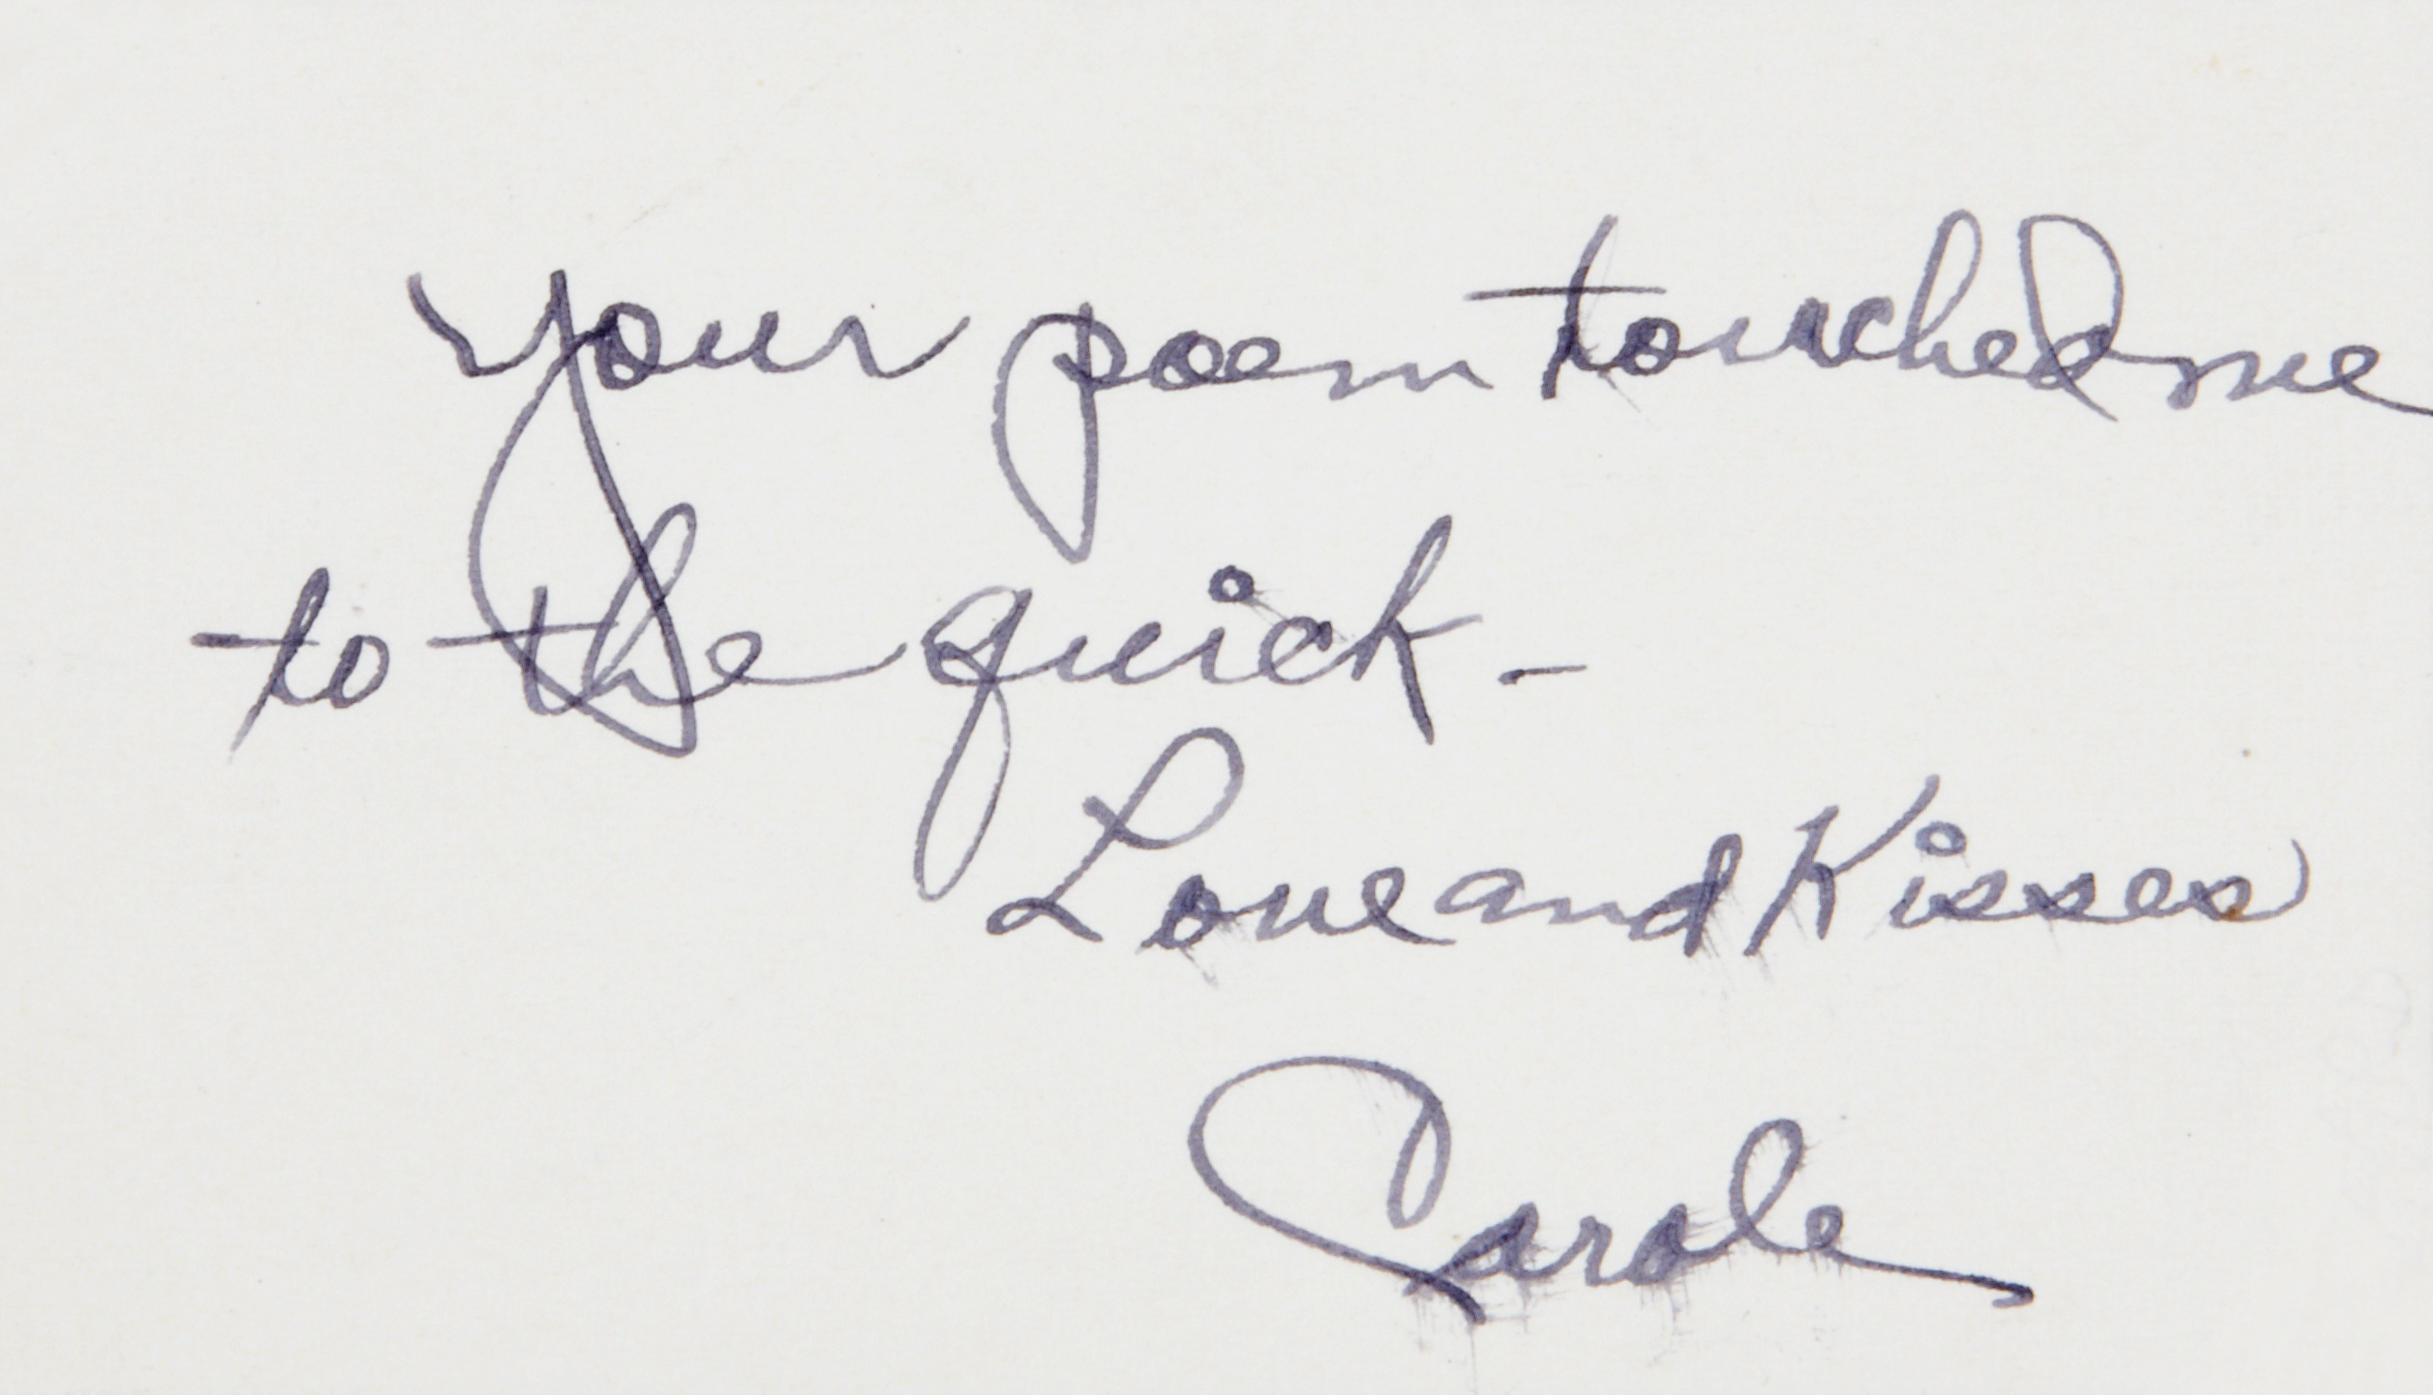 your poem touched me
to the quick -
Love and Kisses
Carole